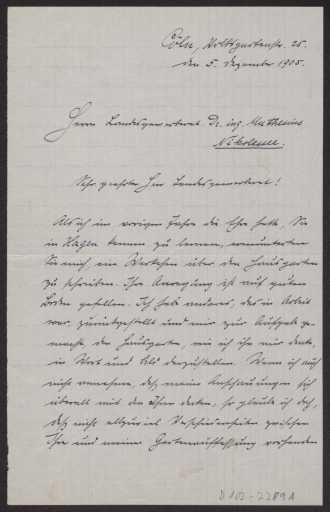 Cöln, Volksgartenstr. 25.
den 5. Dezember 1905.
Herrn Landesgewerberat Dr. ing. Muthesius
Nikolassee.
Sehr geehrter Herr Landesgewerberat!
Als ich im vorigen Jahre die Ehre hatte, Sie
in Hagen kennen zu lernen, ermunterten
Sie mich, ein Werkchen über den Hausgarten
zu schreiben. Ihre Anregung ist auf guten
Boden gefallen. Ich habe anderes, das in Arbeit
war, zurückgestellt und mir zur Aufgabe ge-
macht den Hausgarten, wie ich ihn mir denke,
in Wort und Bild darzustellen. Wenn ich auch
nicht annehme, daß meine Anschauungen sich
überall mit den Ihren decken, so glaube ich doch,
daß nicht allzuviel Verschiedenheiten zwischen
Ihrer und meiner Gartenauffassung vorhanden
D 102-22891